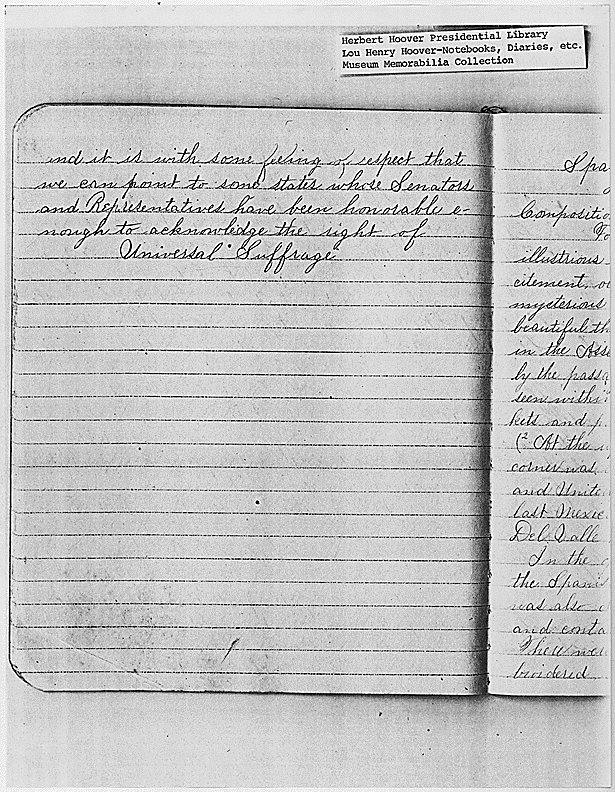 Herbert Hoover Presidential Library
Lou Henry Hoover-Notebooks, Diaries, etc.
Museum Memorabilia Collection
and it is with some feeling of respect that
we can point to some states whose Senators
and Representatives have been honorable e-
nough to acknowledge the right of
Universal Suffrage
Spa
Compositio
To
illustrious
citement, or
mysterious
beautiful th
in the Asse
by the passa
seen with
kets and
(2 At the
corner was
and Unite
last Mexic
Del Valle
In the
the Spanis
was also
and conta
There wer
broidered